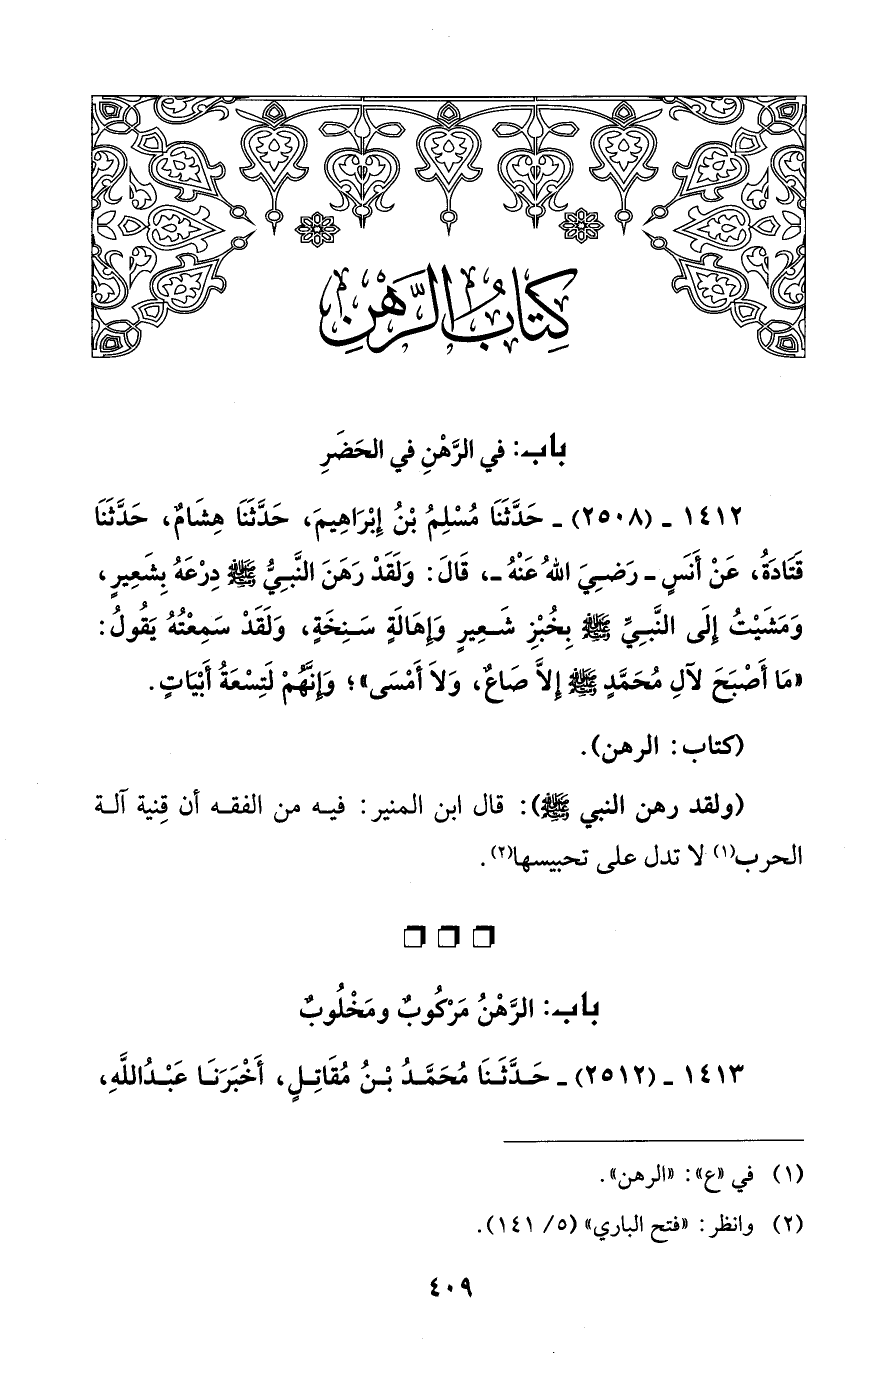 كِتَابُ الرَّهْنِ
باب: في الرَّهْنِ في الحَضَرِ
١٤١٢ ـ (٢٥٠٨) ـ حَدَّثَنَا مُسْلِمُ بْنُ إِبْرَاهِيمَ، حَدَّثَنَا هِشَامٌ، حَدَّثَنَا
قَتَادَةُ، عَنْ أَنَسٍ ـ رَضِيَ اللهُ عَنْهُ ـ، قَالَ: وَلَقَدْ رَهَنَ النَّبِيُّ ﷺ دِرْعَهُ بِشَعِيرٍ،
وَمَشَيْتُ إِلَى النَّبِيِّ ﷺ بِخُبْزِ شَعِيرٍ وَإِهَالَةٍ سَنِخَةٍ، وَلَقَدْ سَمِعْتُهُ يَقُولُ:
«مَا أَصْبَحَ لآلِ مُحَمَّدٍ ﷺ إِلاَّ صَاعٌ، وَلاَ أَمْسَى»؛ وَإِنَّهُمْ لَتِسْعَةُ أَبْيَاتٍ.
(كتاب: الرهن).
(ولقد رهن النبي ﷺ): قال ابن المنير: فيه من الفقه أن قِنية آلة
الحرب(١) لا تدل على تحبيسها(٢).
باب: الرَّهْنُ مَرْكُوبٌ ومَحْلُوبٌ
١٤١٣ ـ (٢٥١٢) ـ حَدَّثَنَا مُحَمَّدُ بْنُ مُقَاتِلٍ، أَخْبَرَنَا عَبْدُاللَّهِ،
(١) في «ع»: «الرهن».
(٢) وانظر: «فتح الباري» (٥/ ١٤١).
٤٠٩